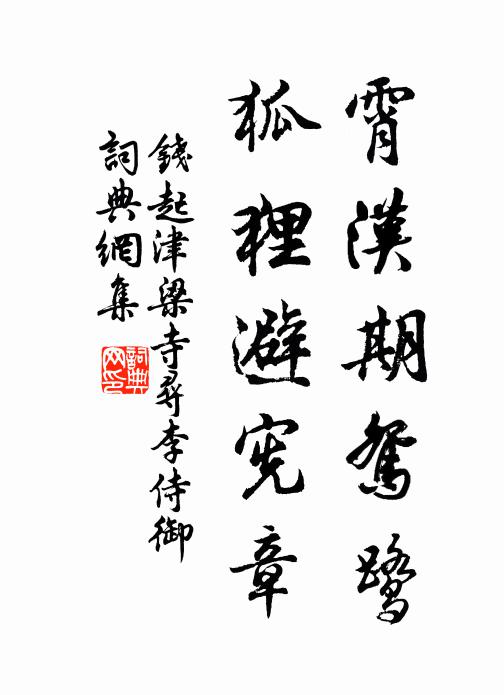 霄漢期鴛鷺
狐狸避宪章
錢起津梁寺尋李侍御
詞典網集
詞典网印